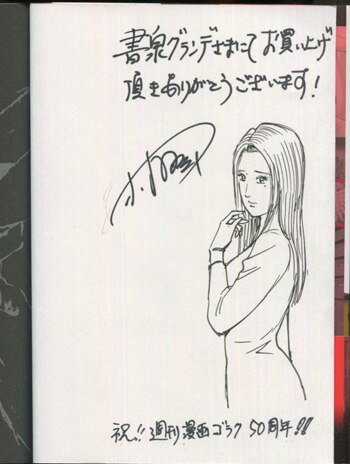 書泉グランデさまにてお買い上げ
頂きありがとうございます!
祝!! 週刊漫画ゴラク 50周年!!